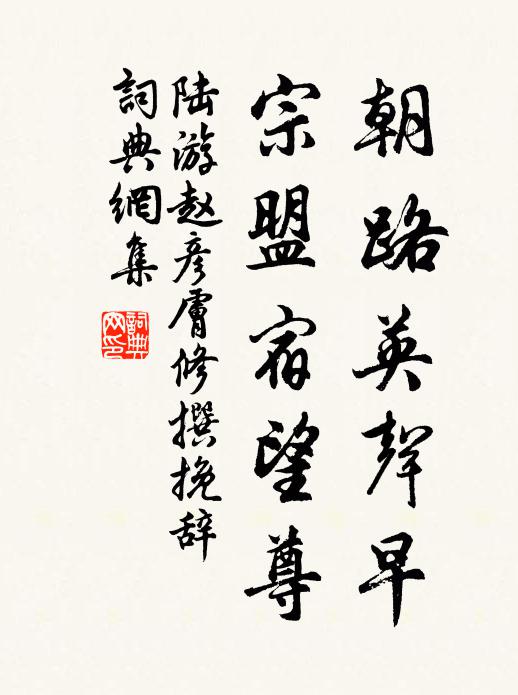 朝路英聲早
宗盟宿望尊
陆游赵彦膚修撰挽辞
詞典網集
詞典网印